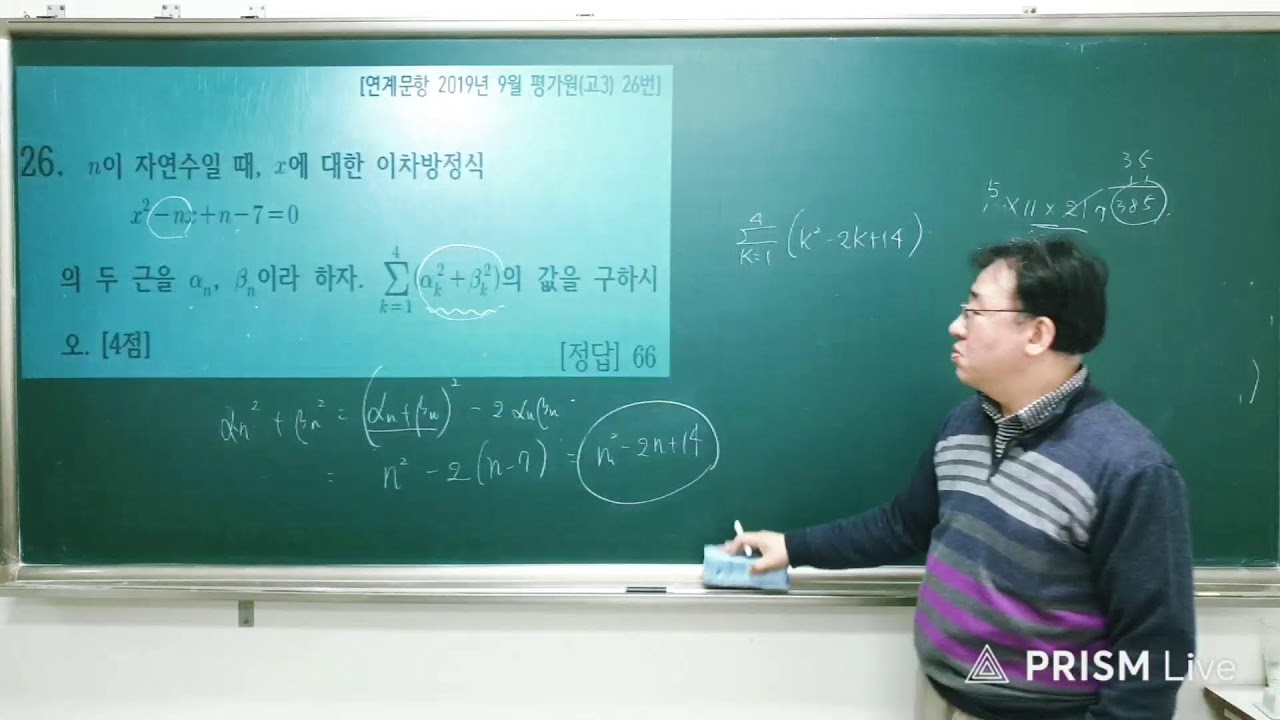 [연계문항 2019년 9월 평가원(고3) 26번]
26. n이 자연수일 때, x에 대한 이차방정식
x²-nx+n-7=0
의 두 근을 αₙ, βₙ이라 하자. ∑_{k=1}^{4}(α_k²+β_k²)의 값을 구하시
오. [4점]
[정답] 66
αₙ² + βₙ² = (αₙ+βₙ)² - 2αₙβₙ
= n² - 2(n-7) = n²-2n+14
∑_{K=1}^{4}(k²-2k+14)
35
5
×11×21
385
PRISM Live